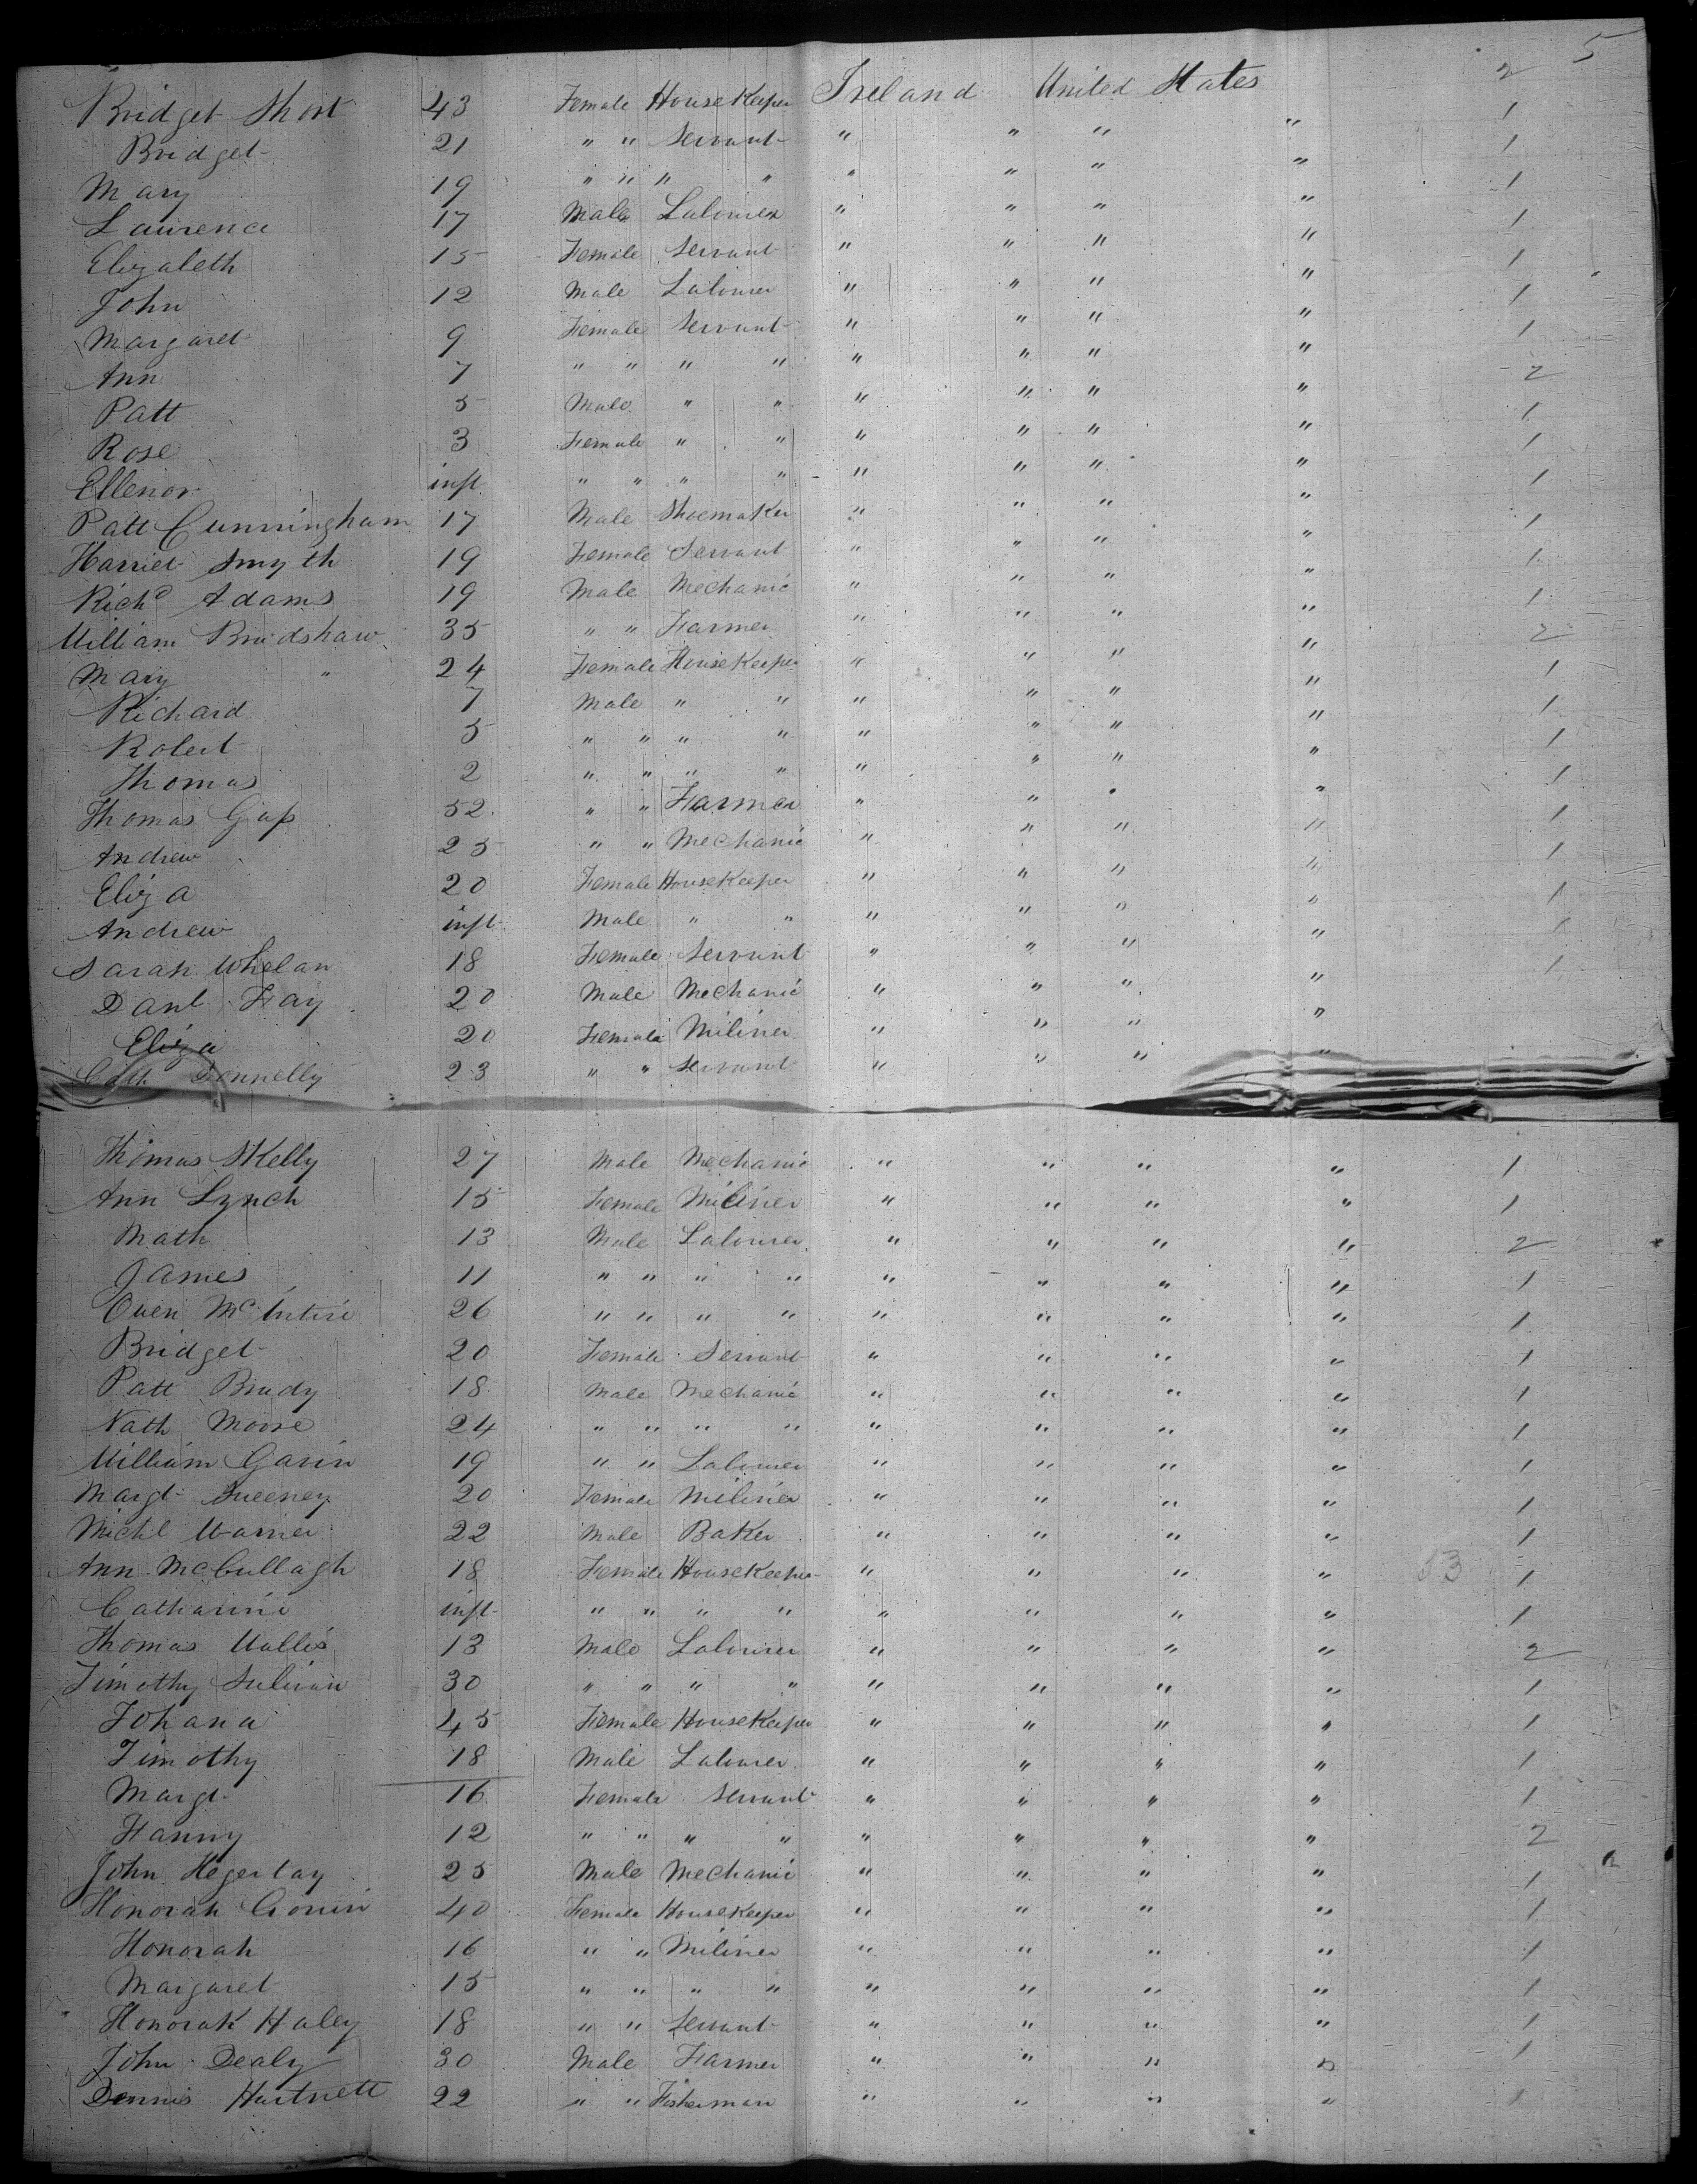 5
Bridget Short 43 Female HouseKeeper Ireland United States 2
Bridget 21 " " Servant " " " " 1
Mary 19 " " " " " " " " 1
Laurence 17 Male Labourer " " " " 1
Elizabeth 15 Female Servant " " " " 1
John 12 Male Labourer " " " " 1
Margaret 9 Female Servant " " " " 1
Ann 7 " " " " " " " " 1
Patt 5 Male " " " " " " 2
Rose 3 Female " " " " " " 1
Ellenor inft " " " " " " " " 1
Patt Cunningham 17 Male Shoemaker " " " " 1
Harriet Smyth 19 Female Servant " " " " 1
Richd Adams 19 Male Mechanic " " " " 1
William Bradshaw 35 " " Farmer " " " " 1
Mary " 24 Female HouseKeeper " " " " 2
Richard 7 Male " " " " " " 1
Robert 5 " " " " " " " " 1
Thomas 2 " " " " " " " " 1
Thomas Gass 52 " " Farmer " " " " 1
Andrew 25 " " Mechanic " " " " 1
Eliza 20 Female HouseKeeper " " " " 1
Andrew inft Male " " " " " " 1
Sarah Whelan 18 Female Servant " " " " 1
Danl Fay 20 Male Mechanic " " " " 1
Eliza 20 Female Miliner " " " "
Cath Donnelly 23 " " Servant " " " "
Thomas SKelly 27 Male Mechanic " " " " 1
Ann Lynch 15 Female Miliner " " " " 1
Math 13 Male Labourer " " " " 2
James 11 " " " " " " " " 1
Owen McIntire 26 " " " " " " " " 1
Bridget 20 Female Servant " " " " 1
Patt Brady 18 Male Mechanic " " " " 1
Nath Moore 24 " " " " " " " " 1
William Gavin 19 " " Labourer " " " " 1
Margt Sweeney 20 Female Miliner " " " " 1
Michl Warner 22 Male Baker " " " " 1
Ann McCullagh 18 Female HouseKeeper " " " " 53 1
Catharine inft " " " " " " " " 1
Thomas Wallis 13 Male Labourer " " " " 2
Timothy Sulivan 30 " " " " " " " " 1
Johana 45 Female HouseKeeper " " " " 1
Timothy 18 Male Labourer " " " " 1
Margt 16 Female Servant " " " " 1
Fanny 12 " " " " " " " " 2
John Hegertay 25 Male Mechanic " " " " 1
Honorah Cronin 40 Female HouseKeeper " " " " 1
Honorah 16 " " Miliner " " " " 1
Margaret 15 " " " " " " " " 1
Honorah Haley 18 " " Servant " " " " 1
John Dealy 30 Male Farmer " " " " 1
Dennis Hartnett 22 " " Fisherman " " " " 1